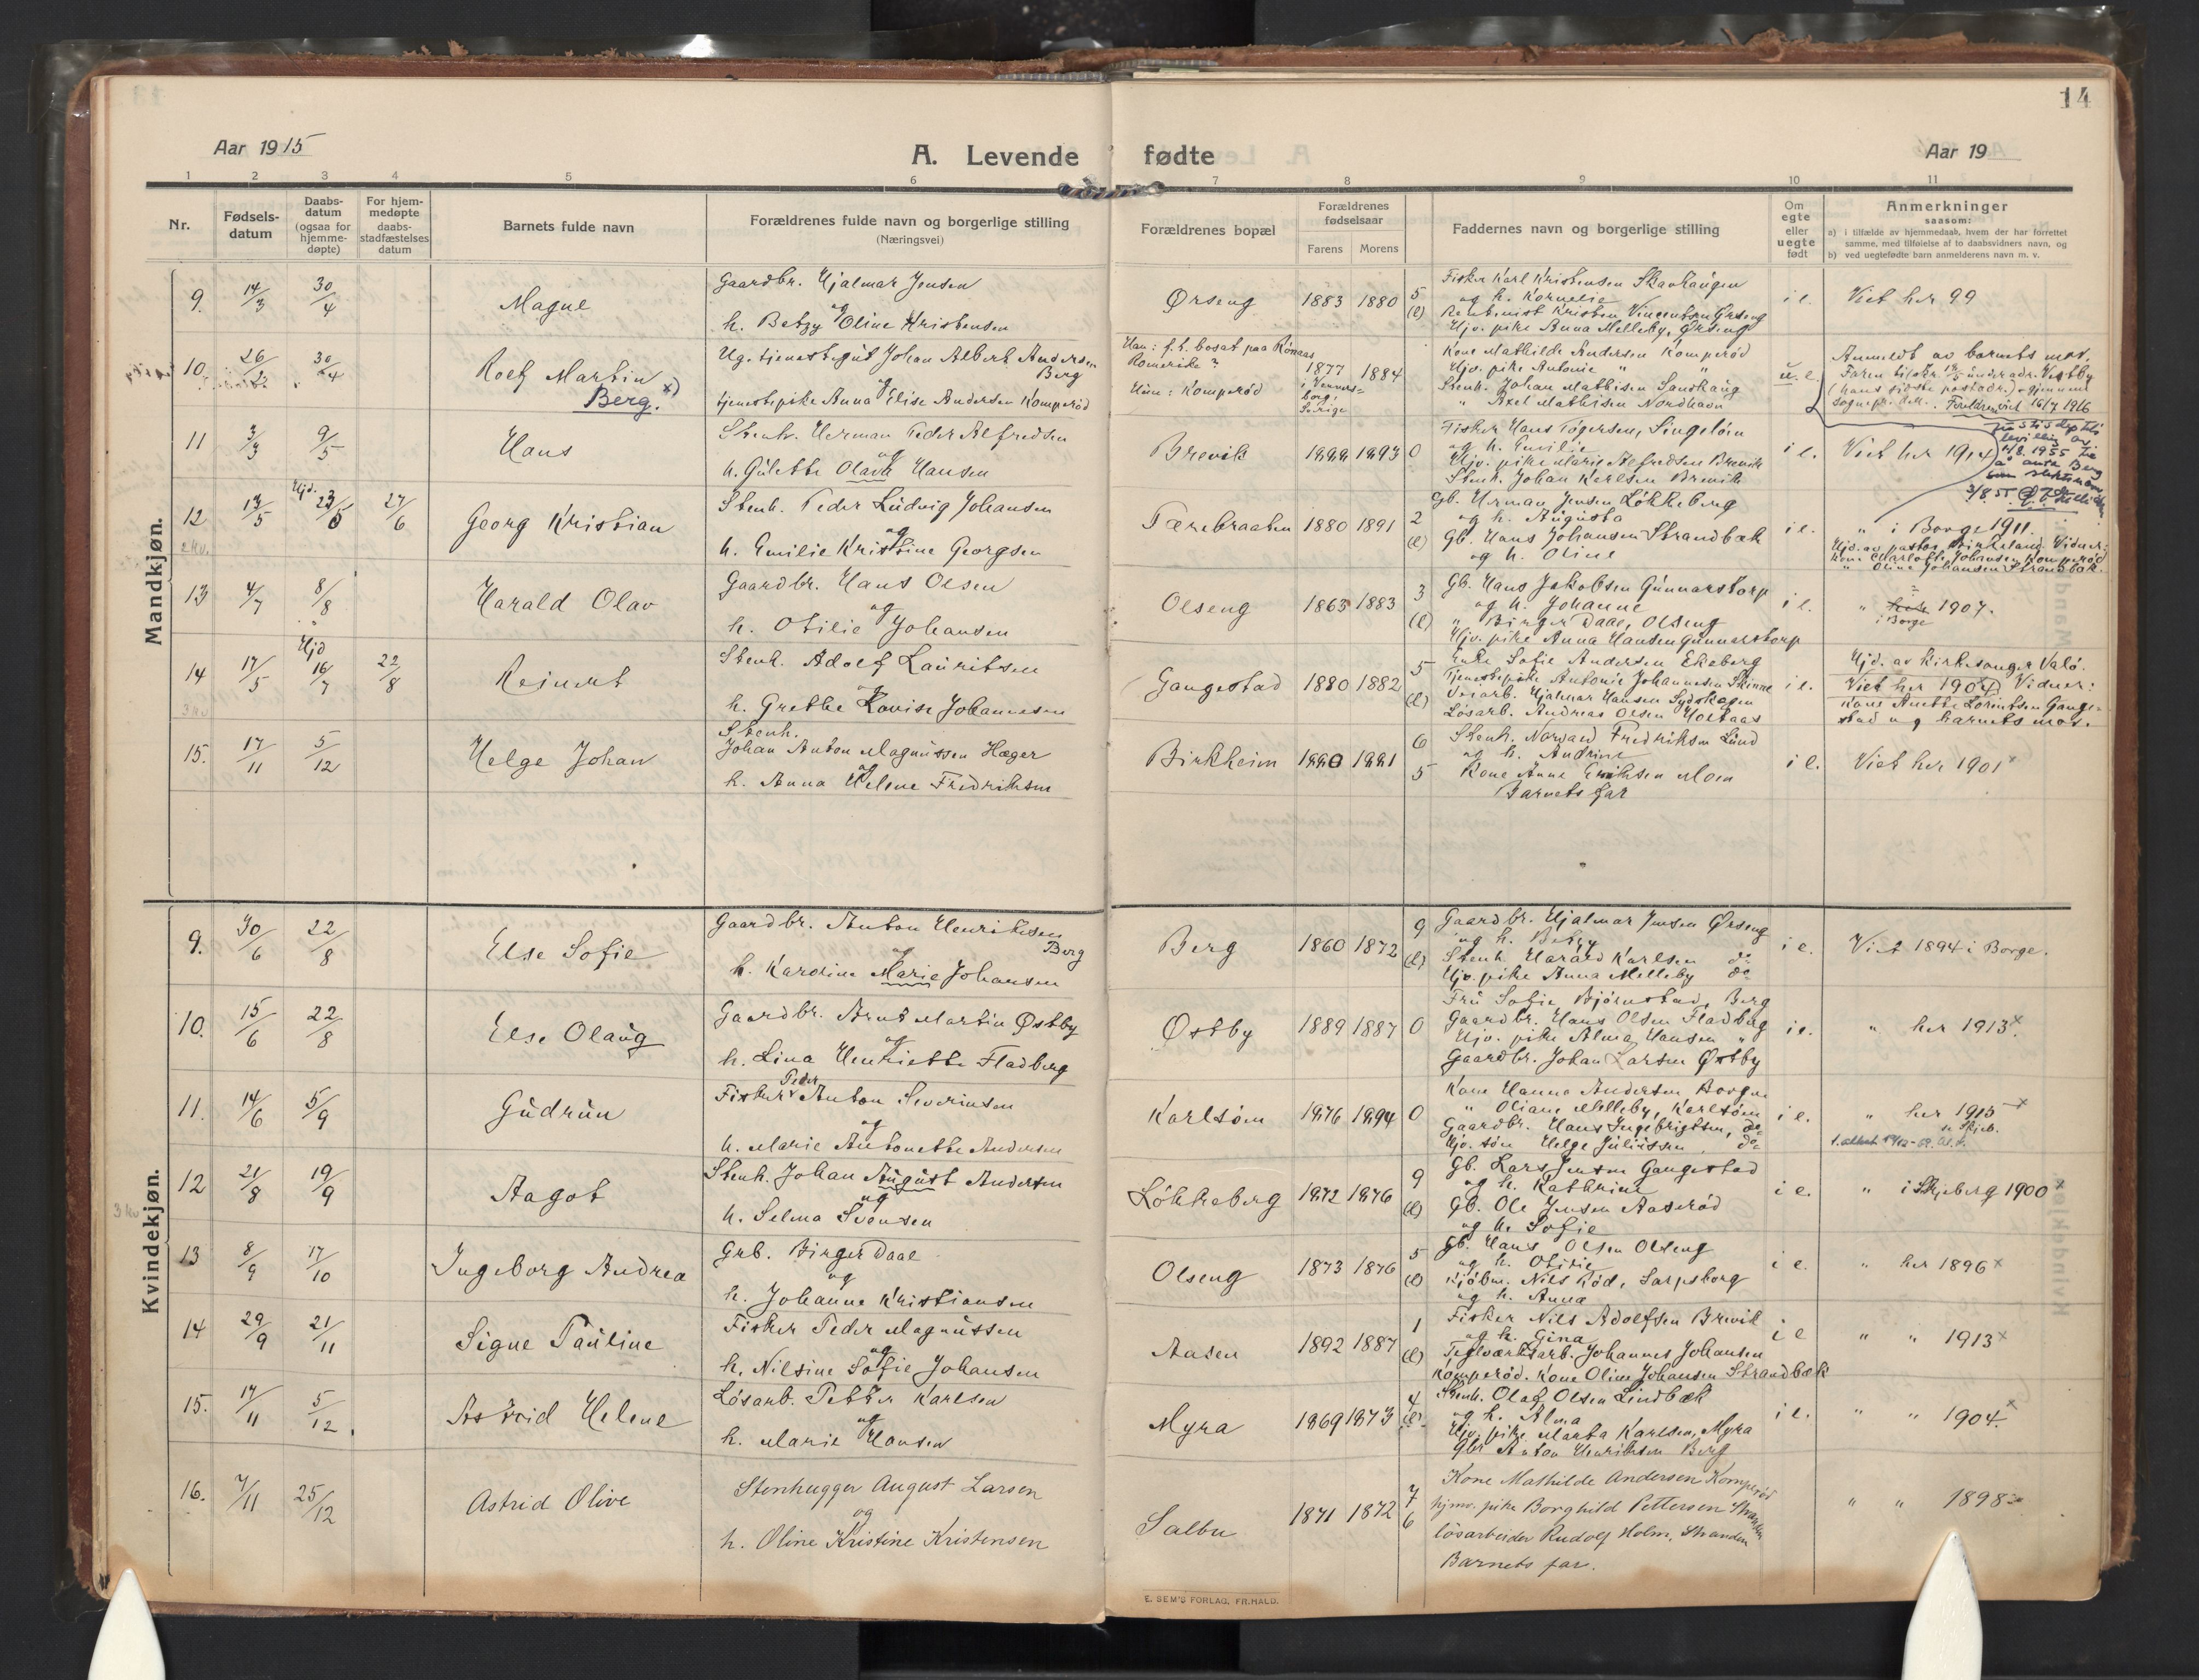 14
Aar 1915
A. Levende fødte
Aar 19
1 2 3 4 5 6 7 8 9 10 11
Nr.
Fødsels-
datum
Daabs-
datum
(ogsaa for
hjemme-
døpte)
For hjem-
medøpte
daabs-
stadfæstelses
datum
Barnets fulde navn
Forældrenes fulde navn og borgerlige stilling
(Næringsvei)
Forældrenes bopæl
Forældrenes
fødselsaar
Farens Morens
Faddernes navn og borgerlige stilling
Om
egte
eller
uegte
født
Anmerkninger
saasom:
a) i tilfælde av hjemmedaab, hvem der har forrettet
samme, med tilføielse af to daabsvidners navn, og
b) ved uegtefødte barn anmelderens navn m. v.
Mandkjøn.
9. 14/3 30/4 Magne
Gaardbr. Hjalmar Jensen
og
h. Betzy Oline Kristensen
Ørseng 1883 1880 5 (l)
Fisker Karl Kristensen Skavhaugen
og h. Kornelie
Kristen Vincentsen Ørseng
Hjv. pike Anna Melleby, Ørseng
i e. Viet her 99
10. 26/2 30/4 Rolf Martin
Berg. x)
Ug. tjenestegut Johan Albert Andersen
Berg
og
tjenestepike Anna Elise Andersen Komperød
Han: f. t. bosat paa Rønaas
Romerike?
Hun: Komperød
1877 1884
i Venners-
borg,
Sverige
Kone Mathilde Andersen Komperød
Hjv. pike Antonie " "
Stenh. Johan Mathisen Sandhaug
" Axel Mathisen Nordhavn
u. e.
Anmeldt av barnets mor.
Faren tilskr. under adr. Vestby
(hans sidste postadr.) gjennem
Foreldre viet 16/7 1916
11 3/3 9/5 Hans
Stenh. Herman Peder Alfredsen
og
h. Gulette Olava Hansen
Brevik 1888 1893 0
Fisker Hans Togersen, Singeløen
og h. Emilie
Hjv. pike Marie Alfredsen Brevik
Stenh. Johan Karlsen Brevik
i e. Viet her 1914
12 13/5 Hjd. 23/5 27/6 Georg Kristian
2 kv.
Stenh. Peder Ludvig Johansen
og
h. Emilie Kristine Georgsen
Tærebraaten 1880 1891 2 (l)
Gb. Herman Jensen Løkkeberg
og h. Augusta
Gb. Hans Johansen Strandbæk
og h. Oline
i e. " i Borge 1911.
Hjd. av pastor Birkeland. Vidner:
Kone Charlotte Johansen Komperød
" Oline Johansen Strandbæk.
13 4/7 8/8 Harald Olav
Gaardbr. Hans Olsen
og
h. Otilie Johansen
Olseng 1863 1883 3 (l)
Gb. Hans Jakobsen Gunnarstorp
og h. Johanne
" Birger Daae, Olseng
Hjv. pike Anna Hansen Gunnarstorp
i e. " her 1907.
i Borge
14 17/5 Hjd 16/7 22/8 Reinert
3 kv
Stenh. Adolf Lauritsen
og
h. Grethe Lovise Johannesen
Gangestad 1880 1882 5 (l)
Enke Sofie Andersen Ekeberg
Tjenestepike Antonie Johannesen Skinne
Veiarb. Hjalmar Hansen Sydskogen
Løsarb. Andreas Olsen Holtaas
i e.
Hjd. av kirkesanger Valø.
Viet her 1904. Vidner:
Kone Anette Lorentsen Gange-
stad og barnets mor.
15. 17/11 5/12 Helge Johan
Stenh.
Johan Anton Magnussen Hæger
og
h. Anna Helene Fredriksen
Birkheim 1880 1881 6 5
Stenh. Norvard Fredriksen Lund
og h. Andrine
Kone Anne Eriksen Moen
Barnets far
i e. Viet her 1901 x
Kvindekjøn.
9. 30/6 22/8 Else Sofie
Gaardbr. Anton Henriksen
Berg
og
h. Karoline Marie Johansen
Berg 1860 1872 9 (l)
Gaardbr. Hjalmar Jensen Ørseng
og h. Betzy
Stenh. Harald Karlsen do
Hjv. pike Anna Melleby do
i e. Viet 1894 i Borge.
10. 15/6 22/8 Else Olaug
Gaardbr. Arnt Martin Østby
og
h. Lina Henriette Fladberg
Østby 1889 1887 0
Fru Sofie Bjørnstad, Berg
Gaardbr. Hans Olsen Fladberg
Hjv. pike Alma Hansen "
Gaardbr. Johan Larsen Østby
i e. " her 1913 x
11. 14/6 5/9 Gudrun
Peder
Fisker Anton Severinsen
og
h. Marie Antonette Andersen
Karlsøen 1876 1894 0
Kone Hanna Andersen Borgen
" Oliane Melleby, Karlsøen
Gaardbr. Hans Ingebrigtsen, do
Hjv. søn Helge Juliussen, do
i e. " her 1915 x
12 21/8 19/9 Aagot
3 kv
Stenh. Johan August Andersen
og
h. Selma Svensen
Løkkeberg 1872 1876 9 (l)
Gb. Lars Jensen Gangestad
og h. Kathrine
Gb. Ole Jensen Aaserød
og h. Sofie
i e. " i Skjeberg 1900 x
13 8/9 17/10 Ingeborg Andrea
Grb. Birger Daae
og
h. Johanne Kristiansen
Olseng 1873 1876 5 (l)
Gb. Hans Olsen Olseng
og h. Otilie
Kjøbm. Nils Rød, Sarpsborg
og h. Anna
i e. " her 1896 x
14 29/9 21/11 Signe Pauline
Fisker Peder Magnussen
og
h. Nilsine Sofie Johansen
Aasen 1892 1887 1 (l)
Fisker Nils Adolfsen Brevik
og h. Gina
Teglværksarb. Johannes Johansen
Komperød. Kone Oline Johansen Strandbæk
i e " " 1913 x
15. 17/11 5/12. Astrid Helene
Løsarb. Petter Karlsen
og
h. Marie Hansen
Myra 1869 1873 4 (l)
Stenh. Olaf Olsen Lindbæk
og h. Alma
Hjv. pike Marta Karlsen, Myra
Gbr Anton Henriksen Berg
i e. " " 1904. x
16. 7/11 25/12 Astrid Olive
Stenhugger August Larsen
og
h. Oline Kristine Kristensen
Salbu 1871 1872 7 6
Kone Mathilde Andersen Komperød
hjmv. pike Borghild Pettersen Stranden
løsarbeider Rudolf Holm, Stranden
Barnets far.
" " 1898 x
E. SEM'S FORLAG, FR.HALD.